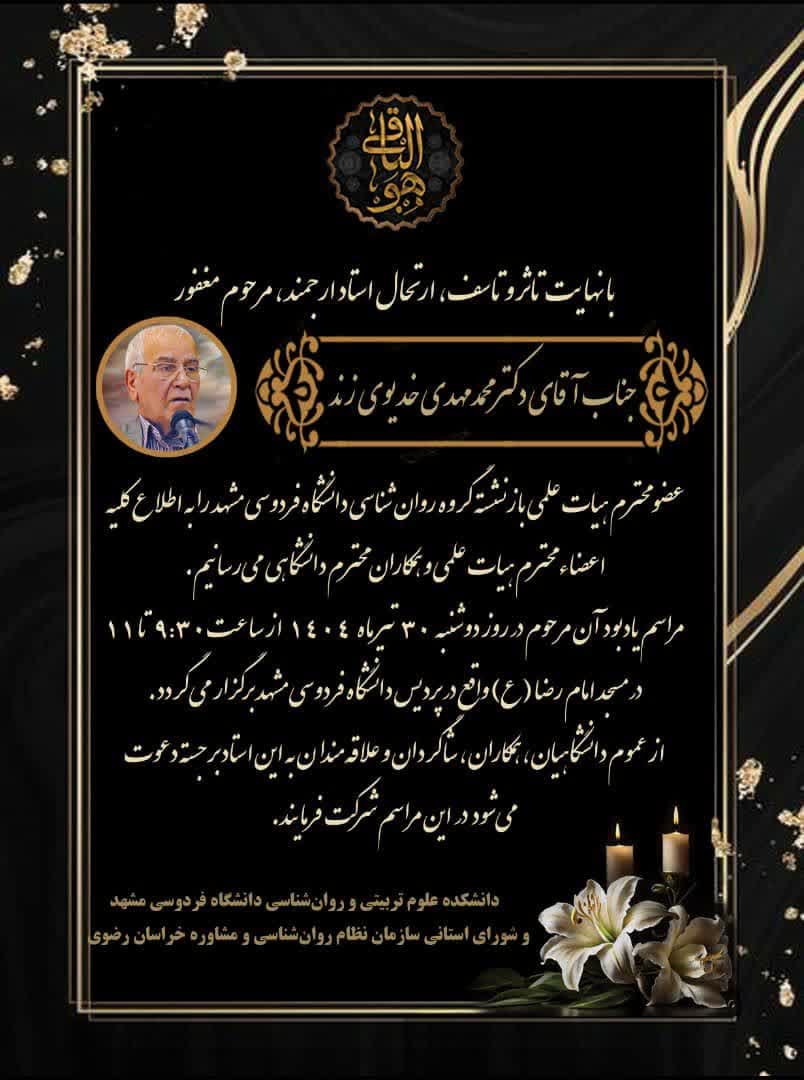 هو الباقی
با نهایت تاثر و تاسف، ارتحال استاد ارجمند، مرحوم مغفور
جناب آقای دکتر محمد مهدی خدیوی زند
عضو محترم هیات علمی بازنشته گروه روان شناسی دانشگاه فردوسی مشهد را به اطلاع کلیه
اعضاء محترم هیات علمی و همکاران محترم دانشگاهی می رسانیم.
مراسم یادبود آن مرحوم در روز دوشنبه ۳۰ تیرماه ۱۴۰۴ از ساعت ۹:۳۰ تا ۱۱
در مسجد امام رضا (ع) واقع در پردیس دانشگاه فردوسی مشهد برگزار می گردد.
از عموم دانشگاهیان، همکاران، شاگردان و علاقه مندان به این استاد برجسته دعوت
می شود در این مراسم شرکت فرمایند.
دانشکده علوم تربیتی و روان‌شناسی دانشگاه فردوسی مشهد
و شورای استانی سازمان نظام روان‌شناسی و مشاوره خراسان رضوی